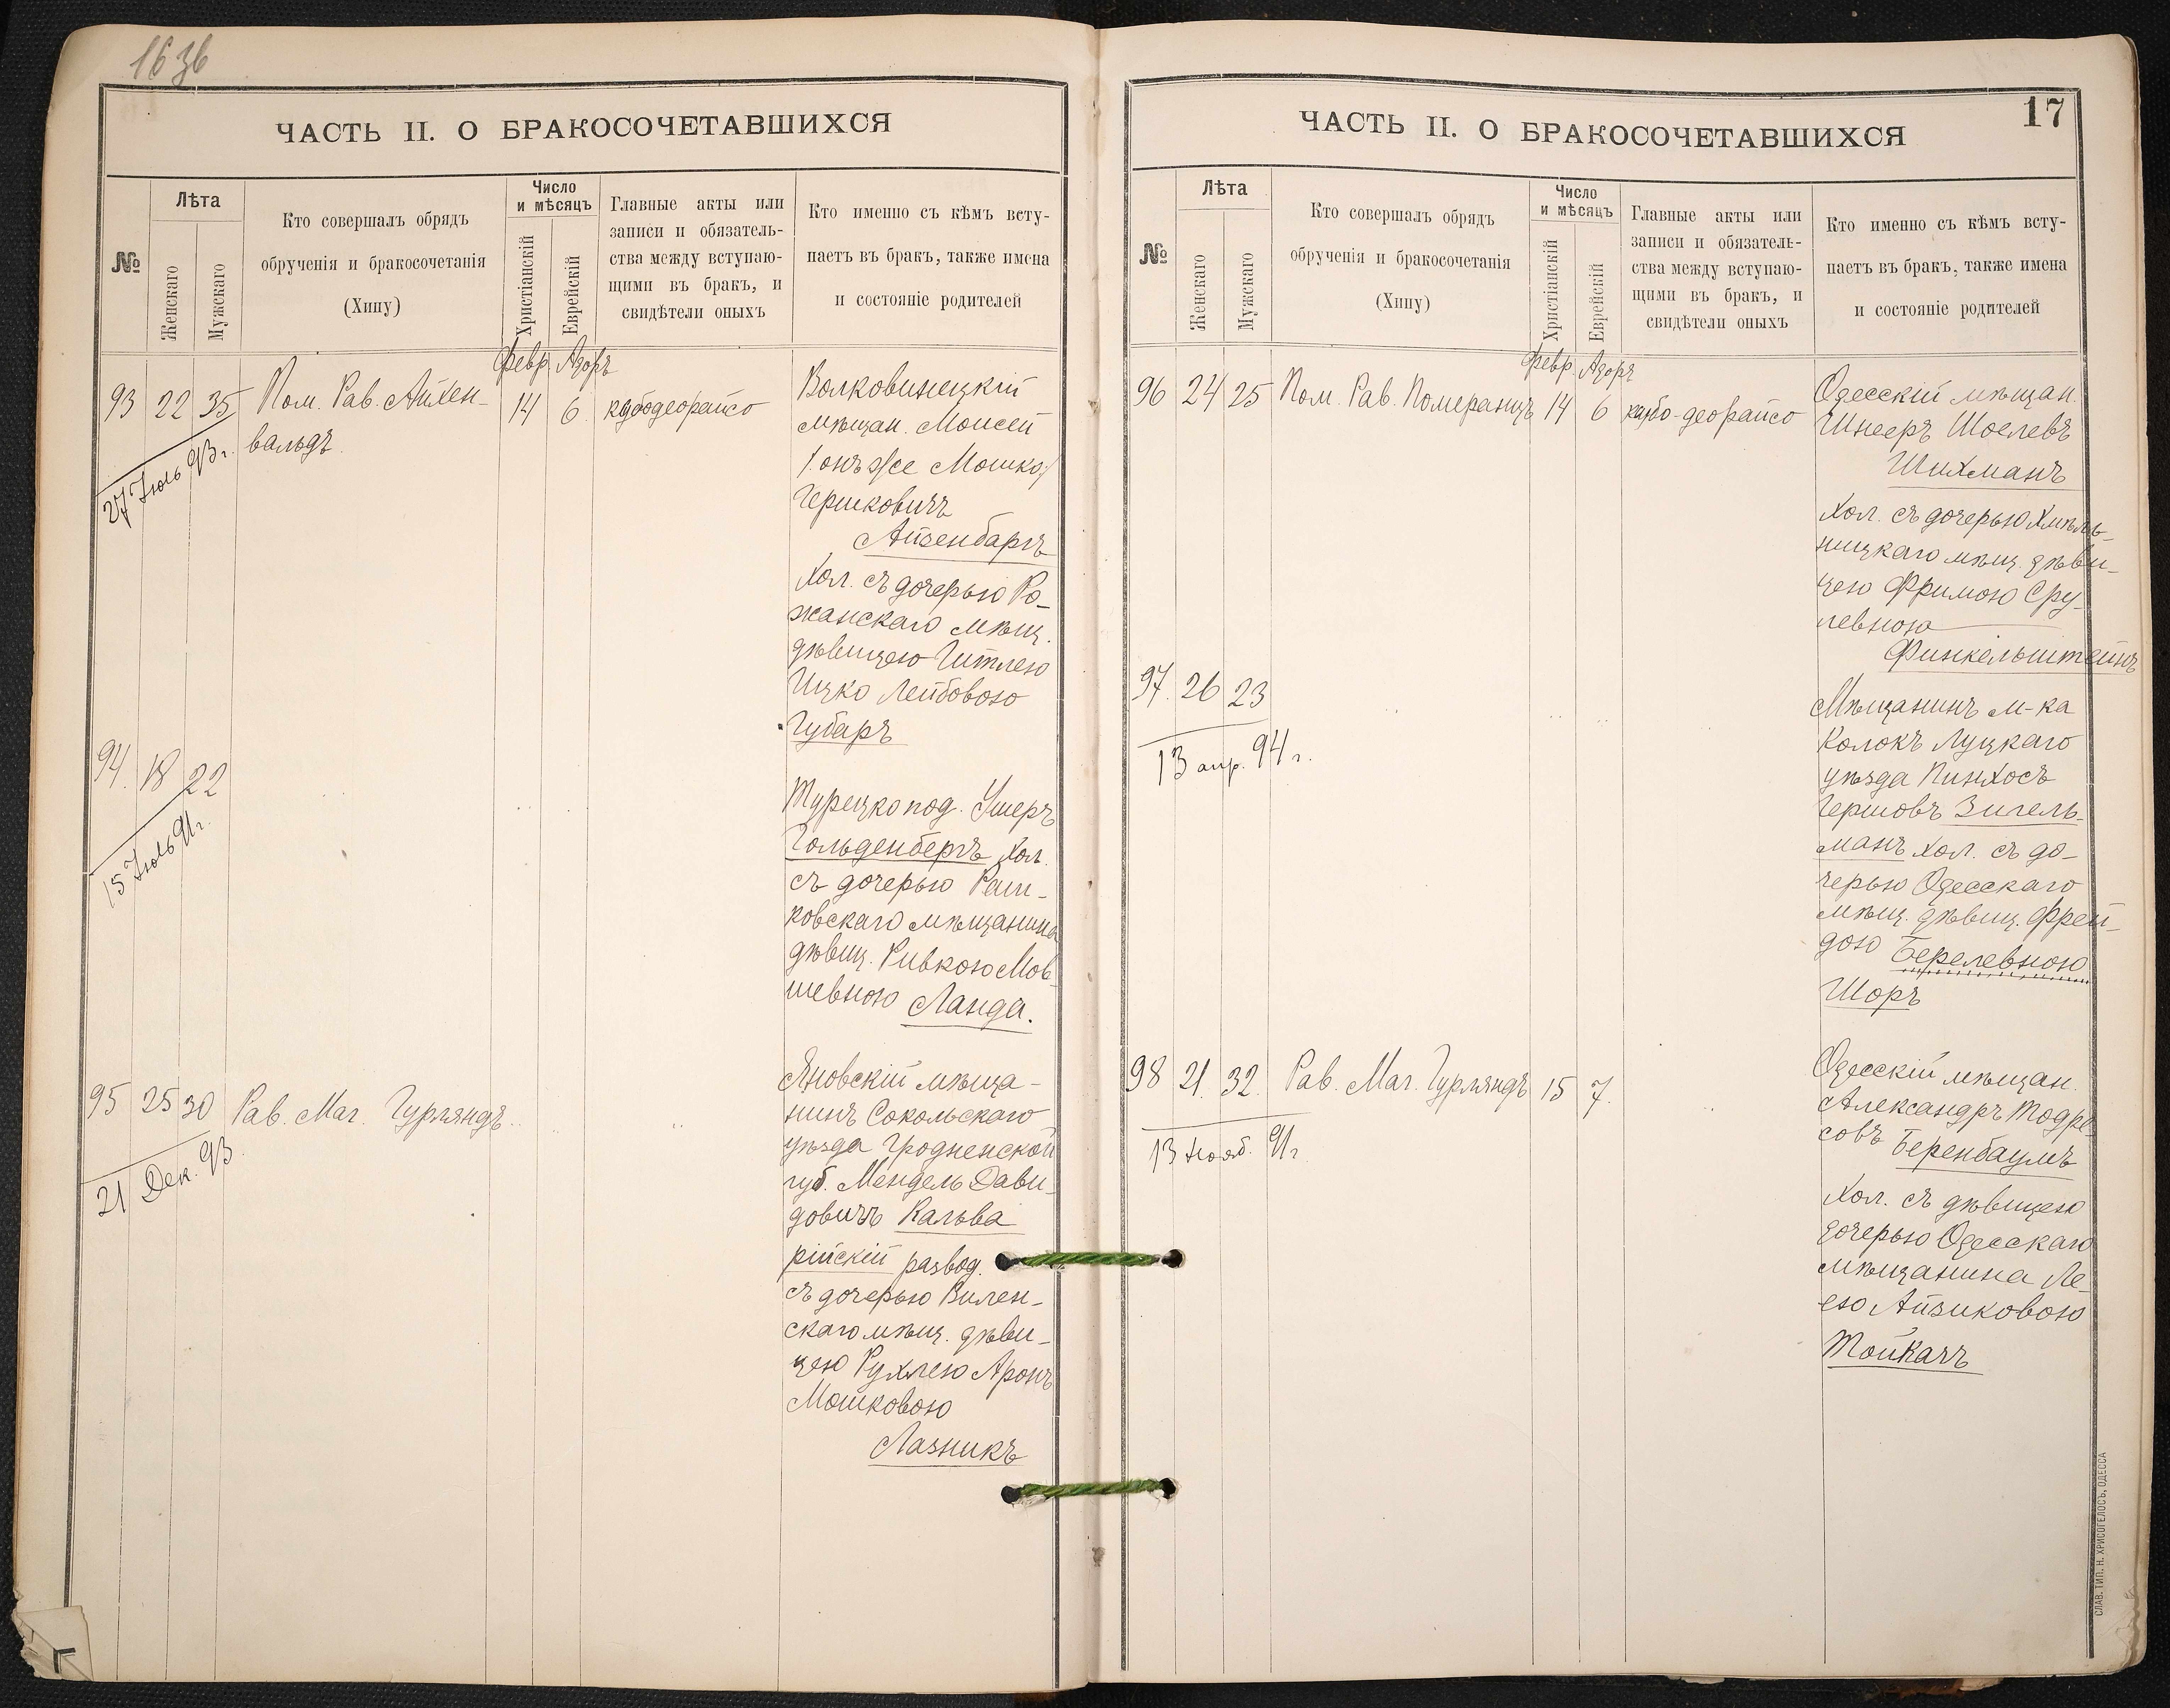 16 зб
ЧАСТЬ II. О БРАКОСОЧЕТАВШИХСЯ
№
Лѣта
Женскаго
Мужскаго
Кто совершалъ обрядъ
обрученія и бракосочетанія
(Хипу)
Число
и мѣсяцъ
Христіанскій
Еврейскій
Главные акты или
записи и обязатель-
ства между вступаю-
щими въ бракъ, и
свидѣтели оныхъ
Кто именно съ кѣмъ всту-
паетъ въ бракъ, также имена
и состояніе родителей
Февр. Адоръ
93 22 35 Пом. Рав. Айхен- 14 6
вальдъ
27 Іюль 93 г.
Волковинецкій
мѣщан. Моисей
/. онъ же Мошко/
Гершковичъ
Айзенбаргъ
Хол. съ дочерью Ро-
жанскаго мѣщ.
дѣвицею Гитлею
Ицко Лейбовою
Губаръ
94. 18 22
15 Іюль 91 г.
Турецкопод. Ушеръ
Гольденбергъ Хол.
съ дочерью Раш-
ковскаго мѣщанина
дѣвиц. Ривкою Мов-
шевною Ланда.
95 25 30 Рав. Маг. Гурляндъ
21 Дек. 93
Яновскій мѣща-
нинъ Сокольскаго
уѣзда Гродненской
губ. Мендель Дави-
довичъ Кальва
рійскій развод.
съ дочерью Вилен-
скаго мѣщ. дѣви-
цею Рухлею Аронъ
Мошковою
Лазникъ
17
ЧАСТЬ II. О БРАКОСОЧЕТАВШИХСЯ
№
Лѣта
Женскаго
Мужскаго
Кто совершалъ обрядъ
обрученія и бракосочетанія
(Хипу)
Число
и мѣсяцъ
Христіанскій
Еврейскій
Главные акты или
записи и обязатель-
ства между вступаю-
щими въ бракъ, и
свидѣтели оныхъ
Кто именно съ кѣмъ всту-
паетъ въ бракъ, также имена
и состояніе родителей
Февр. Адоръ
96 24 25 Пом. Рав. Померанцъ 14 6
Одесскій мѣщан.
Шнееръ Шоелевъ
Шихманъ
Хол. съ дочерью Хмѣль-
ницкаго мѣщ. дѣви-
цею Фримою Сру-
левною
Финкельштейнъ
97. 26 23
13 апр. 94 г.
Мѣщанинъ м-ка
Колокъ Луцкаго
уѣзда Пинхосъ
Гершовъ Зигель-
манъ Хол. съ до-
черью Одесскаго
мѣщ. дѣвиц. Фрей-
дою Берелевною
Шоръ
98 21. 32. Рав. Маг. Гурляндъ 15 7.
13 Нояб. 91 г
Одесскій мѣщан.
Александръ Тодре-
совъ Беренбаумъ
Хол. съ дѣвицею
дочерью Одесскаго
мѣщанина Ле-
ею Айзиковою
Тойкачъ
СЛАВ. ТИП. Н. ХРИСОГЕЛОСЪ, ОДЕССА